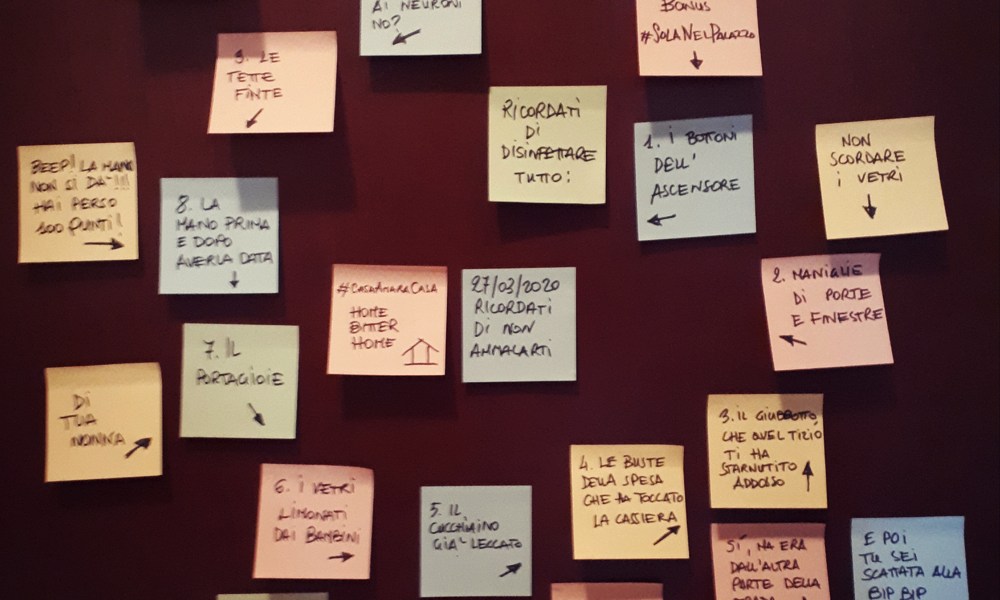 AI NEURONI
NO?
BONUS
#SOLANELPALAZZO
9. LE
TETTE
FINTE
RICORDATI
DI
DISINFETTARE
TUTTO:
1. I BOTTONI
DELL'
ASCENSORE
NON
SCORDARE
I VETRI
BEEP! LA MANO
NON SI DA'!!!
HAI PERSO
100 PUNTI!
8. LA
MANO PRIMA
E DOPO
AVERLA DATA
#CASAAMARACASA
HOME
BITTER
HOME
27/03/2020
RICORDATI
DI NON
AMMALARTI
2. MANIGLIE
DI PORTE
E FINESTRE
7. IL
PORTAGIOIE
DI
TUA
NONNA
3. IL GIUBBOTTO,
CHE QUEL TIZIO
TI HA
STARNUTITO
ADDOSSO
4. LE BUSTE
DELLA SPESA
CHE HA TOCCATO
LA CASSIERA
6. I VETRI
LIMONATI
DAI BAMBINI
5. IL
CUCCHIAINO
GIA' LECCATO
SI', MA ERA
DALL'ALTRA
PARTE DELLA
E POI
TU SEI
SCATTATA ALLA
BIP BIP